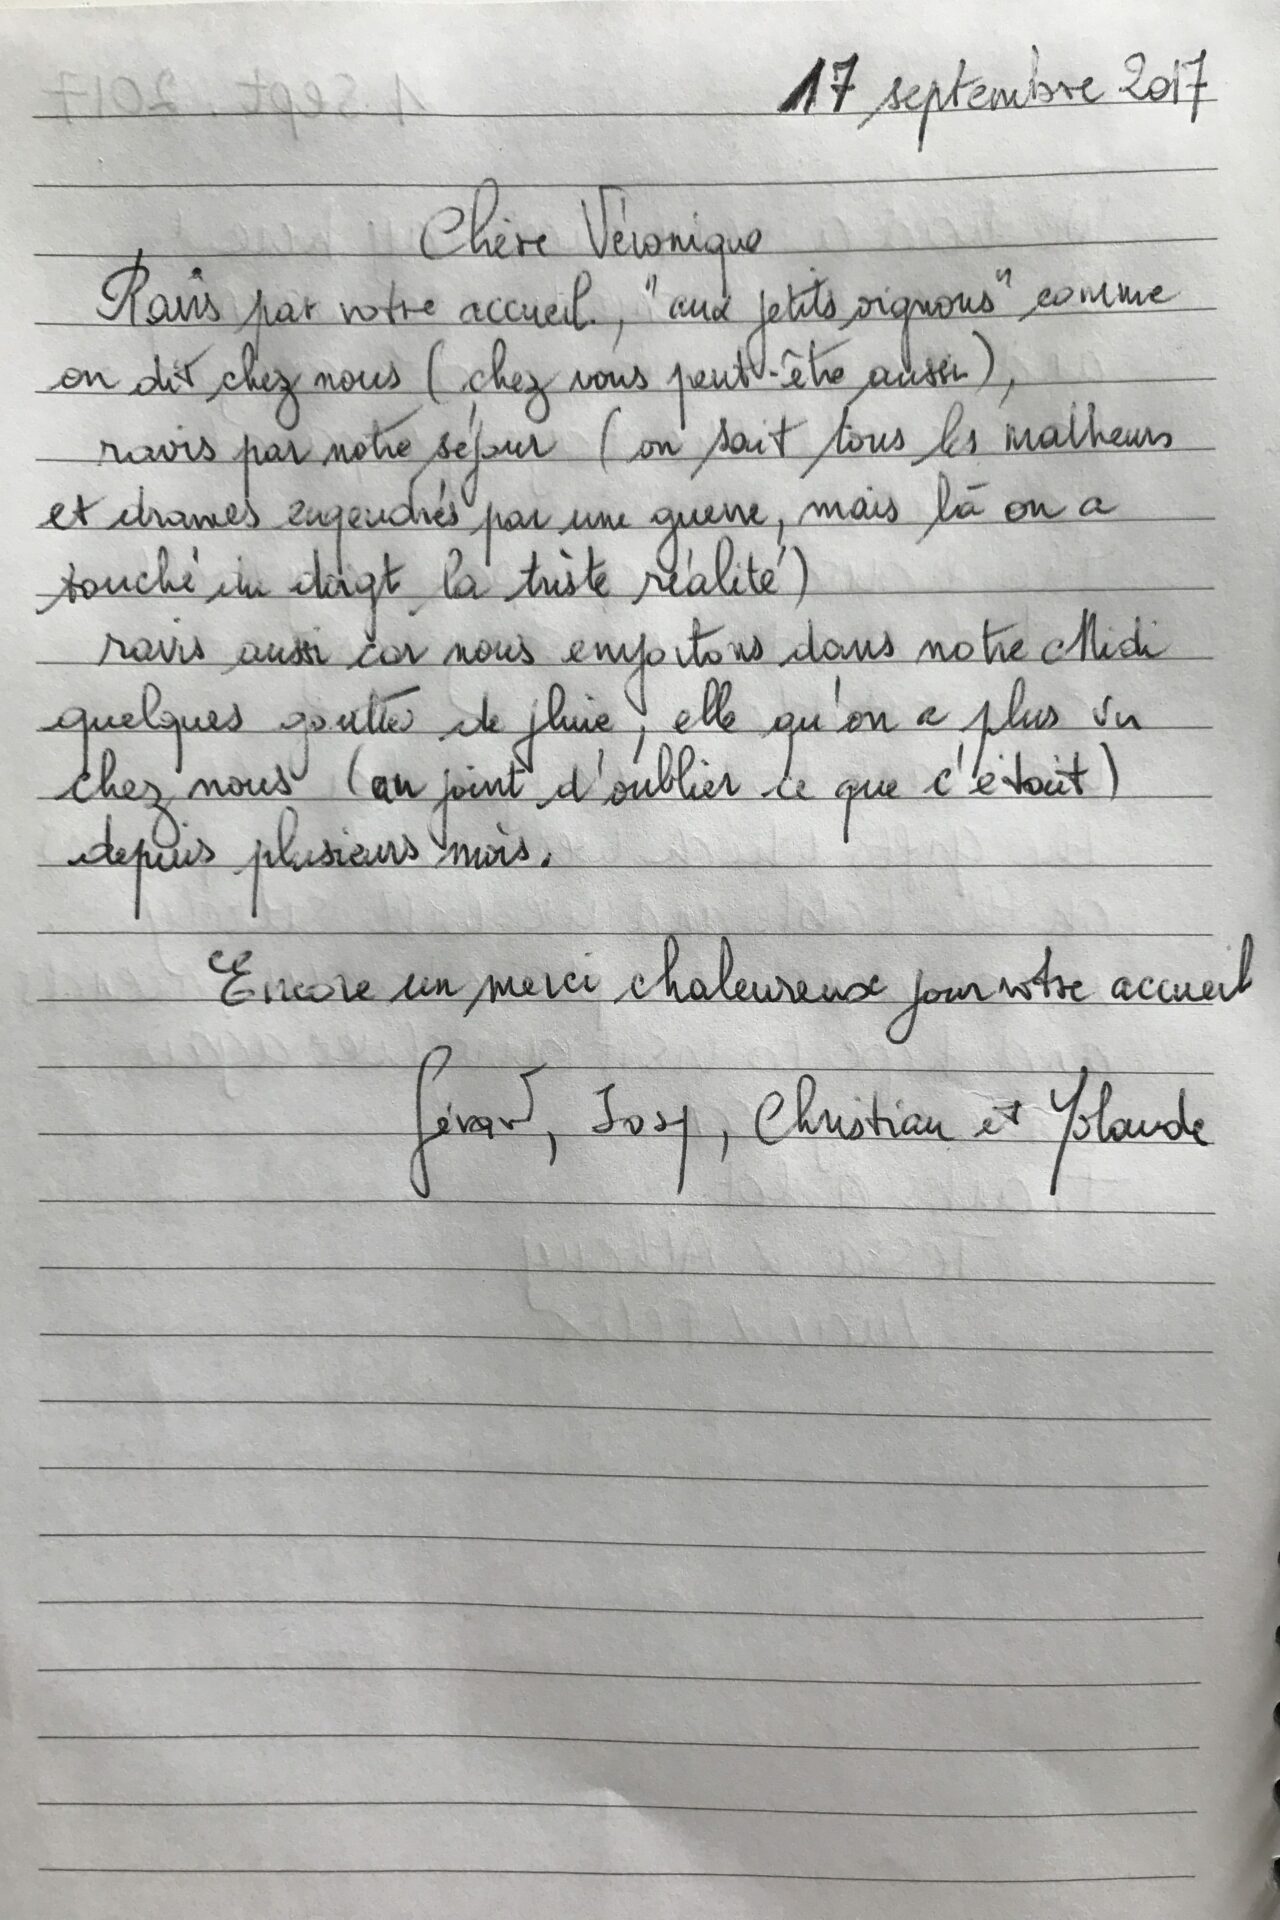 17 septembre 2017
Chère Véronique
Ravis par votre accueil, "aux petits oignons" comme
on dit chez nous (chez vous peut-être aussi),
ravis par notre séjour (on sait tous les malheurs
et drames engendrés par une guerre, mais là on a
touché du doigt la triste réalité)
ravis aussi car nous emportons dans notre Midi
quelques gouttes de pluie, elle qu'on a plus vu
chez nous (au point d'oublier ce que c'était)
depuis plusieurs mois.
Encore un merci chaleureux pour votre accueil
Gérard, Josy, Christian et Yolande